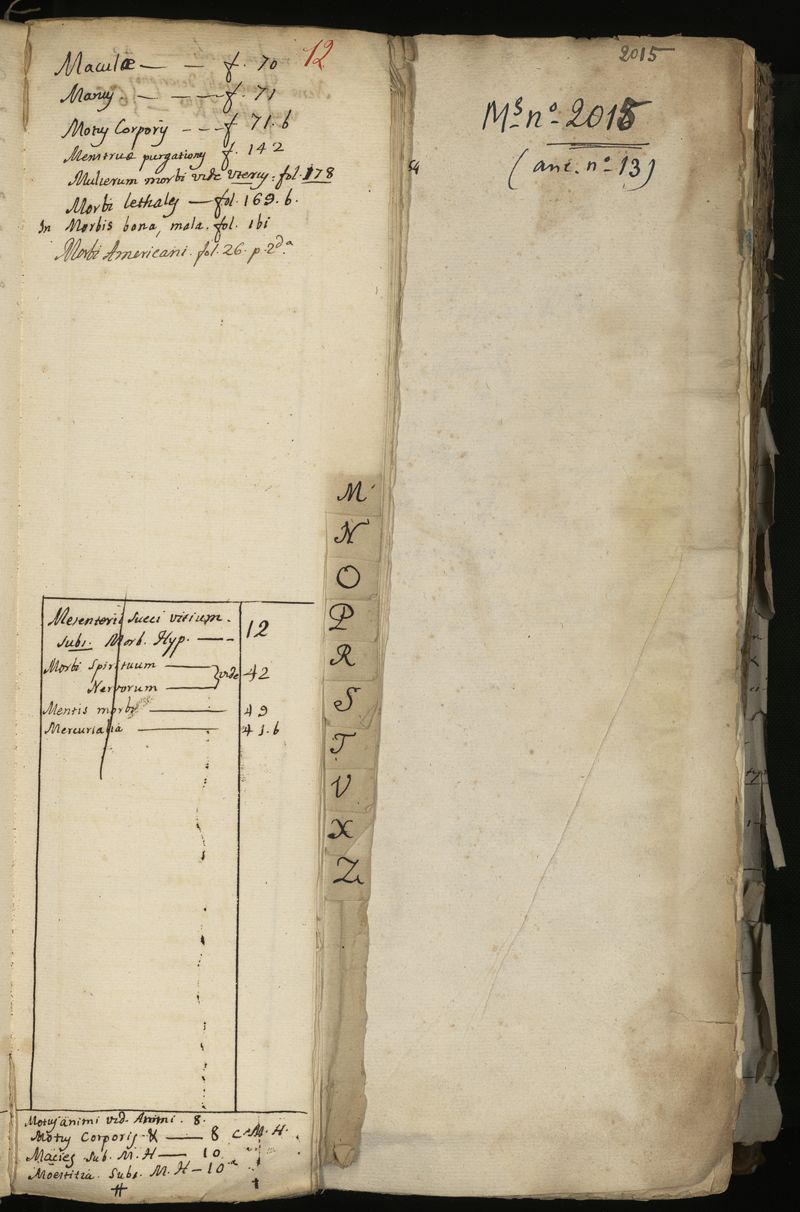 Maculæ — — f. 70
12
Manus — — — f. 71
Motus Corporis - - - f 71. b
Menstruæ purgationes f. 142
Mulierum morbi vide Uterus: fol. 178
Morbi lethales — fol. 169. b.
In Morbis bona, mala. fol. 161
Morbi Americani. fol. 26. p. 2dª.
Mesenterii Succi vitium.
Subs. Morb. Hyp. — - 12
Morbi Spirituum —
Nervorum — } vide 42
Mentis morbi — 49
Mercurialia — 41. b
Motus animi vid. Animi. 8.
Motus Corporis — 8 C. M. H.
Macies Sub. M. H — 10
Moestitia. Subs. M. H — 10
M
N
O
P
R
S
T
V
X
Z
2015
Ms. nº. 2015
(anc. nº. 13)
54